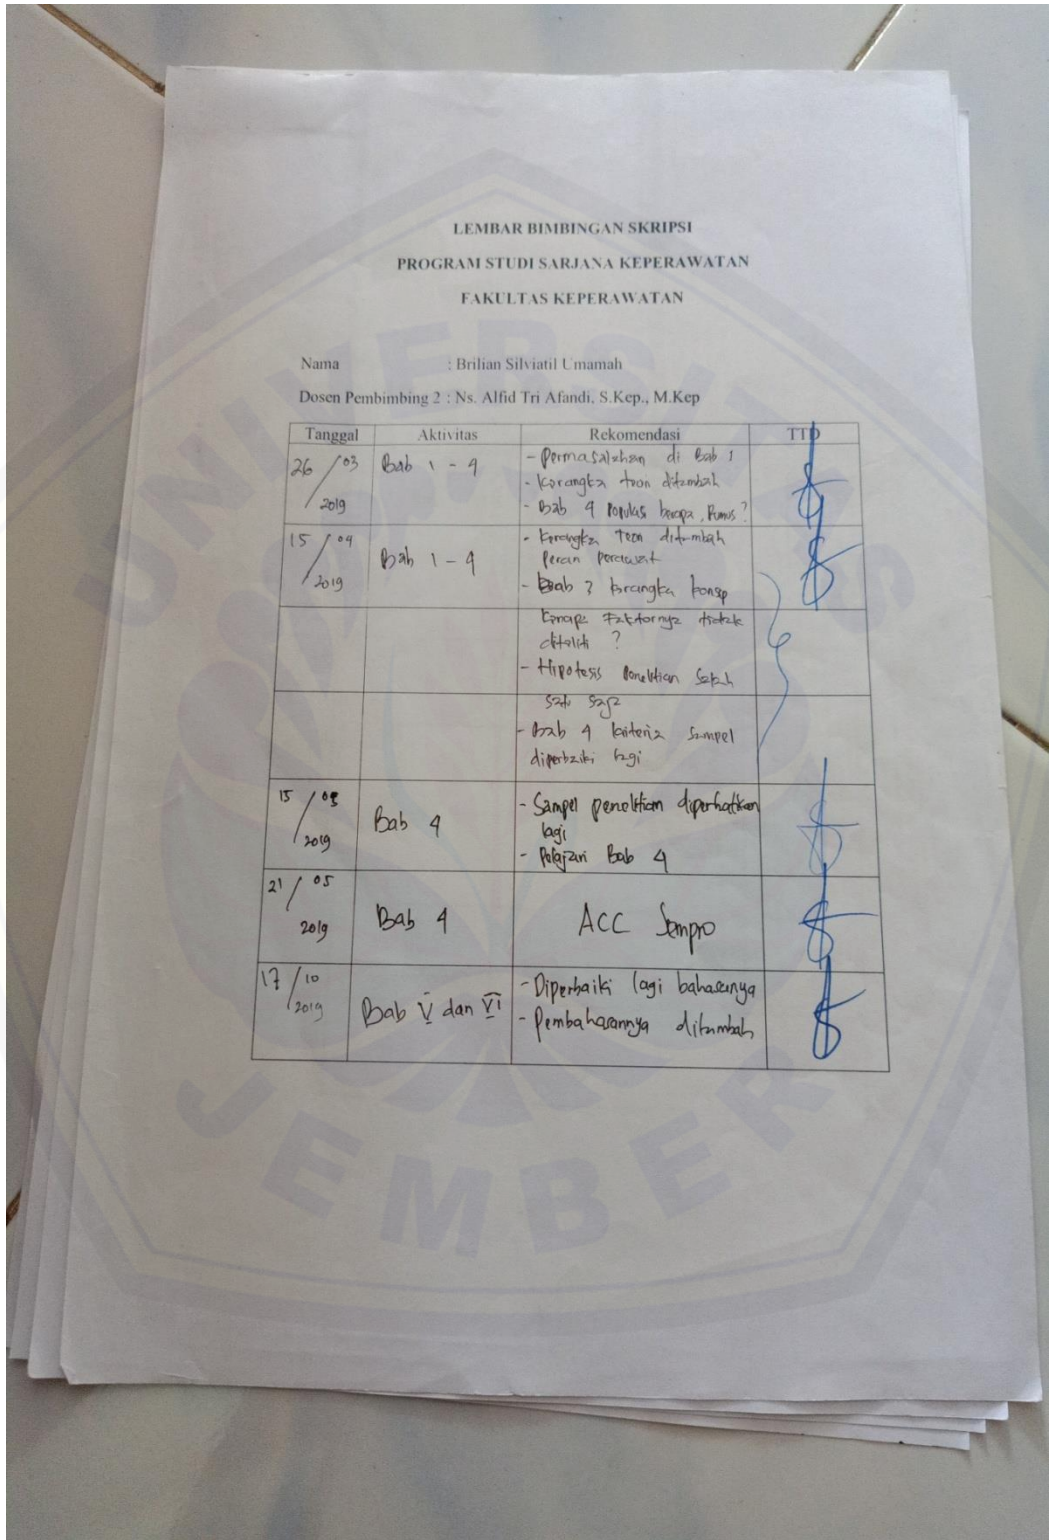 LEMBAR BIMBINGAN SKRIPSI
PROGRAM STUDI SARJANA KEPERAWATAN
FAKULTAS KEPERAWATAN
Nama : Brilian Silviatil Umamah
Dosen Pembimbing 2 : Ns. Alfid Tri Afandi, S.Kep., M.Kep
Tanggal Aktivitas Rekomendasi TTD
26/03 2019 Bab 1 - 4
- Permasalahan di Bab 1
- Kerangka teori ditambah
- Bab 4 Populasi berapa, Rumus?
15/04 2019 Bab 1 - 4
- Kerangka Teori ditambah
peran perawat
- Bab 3 kerangka konsep
Kenapa Faktornya tidak
diteliti ?
- Hipotesis Penelitian Salah
satu saja
- Bab 4 kriteria sampel
diperbaiki lagi
15/05 2019 Bab 4
- Sampel penelitian diperhatikan
lagi
- Pelajari Bab 4
21/05 2019 Bab 4 ACC Sempro
17/10 2019 Bab V dan VI
- Diperbaiki lagi bahasanya
- Pembahasannya ditambah
UNIVERSITAS
JEMBER